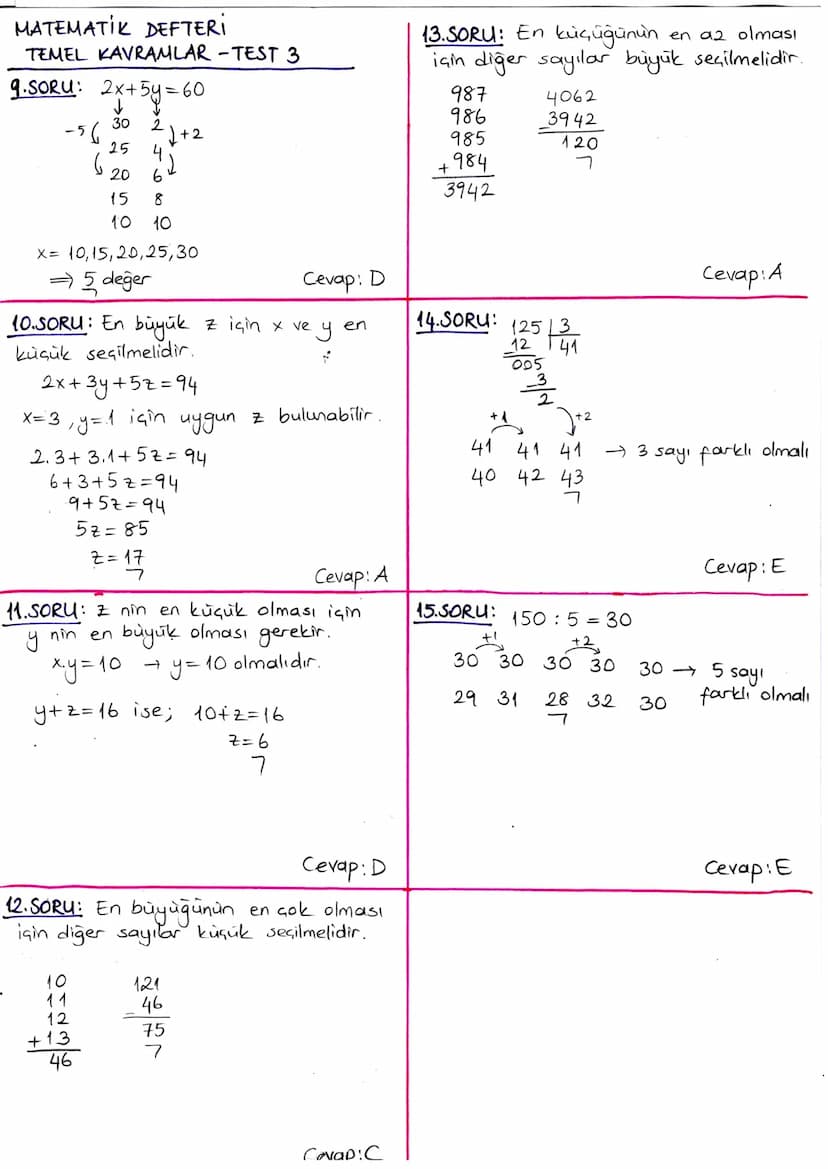 MATEMATİK DEFTERİ
TEMEL KAVRAMLAR - TEST 3
9.SORU: 2x+5y=60
-5 30 2 +2
25 4
20 6
15 8
10 10
x= 10,15,20,25,30
⇒ 5 değer
Cevap: D
10.SORU: En büyük z için x ve y en
küçük seçilmelidir.
2x+3y+5z=94
x=3, y=1 için uygun z bulunabilir.
2.3+3.1+5z=94
6+3+5z=94
9+5z=94
5z=85
z=17
Cevap: A
11.SORU: z nin en küçük olması için
y nin en büyük olması gerekir.
x.y=10 → y=10 olmalıdır.
y+z=16 ise; 10+z=16
z=6
Cevap: D
12.SORU: En büyüğünün en çok olması
için diğer sayılar küçük seçilmelidir.
10 121
11 - 46
12 75
+13
46
Cevap: C
13.SORU: En küçüğünün en az olması
için diğer sayılar büyük seçilmelidir.
987 4062
986 -3942
985 120
+984
3942
Cevap: A
14.SORU: 125 3
-12 41
005
-3
2
+1 +2
41 41 41 → 3 sayı farklı olmalı
40 42 43
Cevap: E
15.SORU: 150 : 5 = 30
+1 +2
30 30 30 30 30 → 5 sayı
farklı olmalı
29 31 28 32 30
Cevap: E